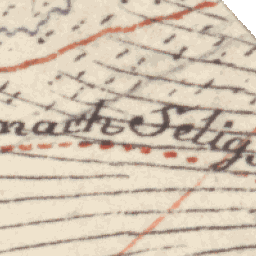 nach Selig